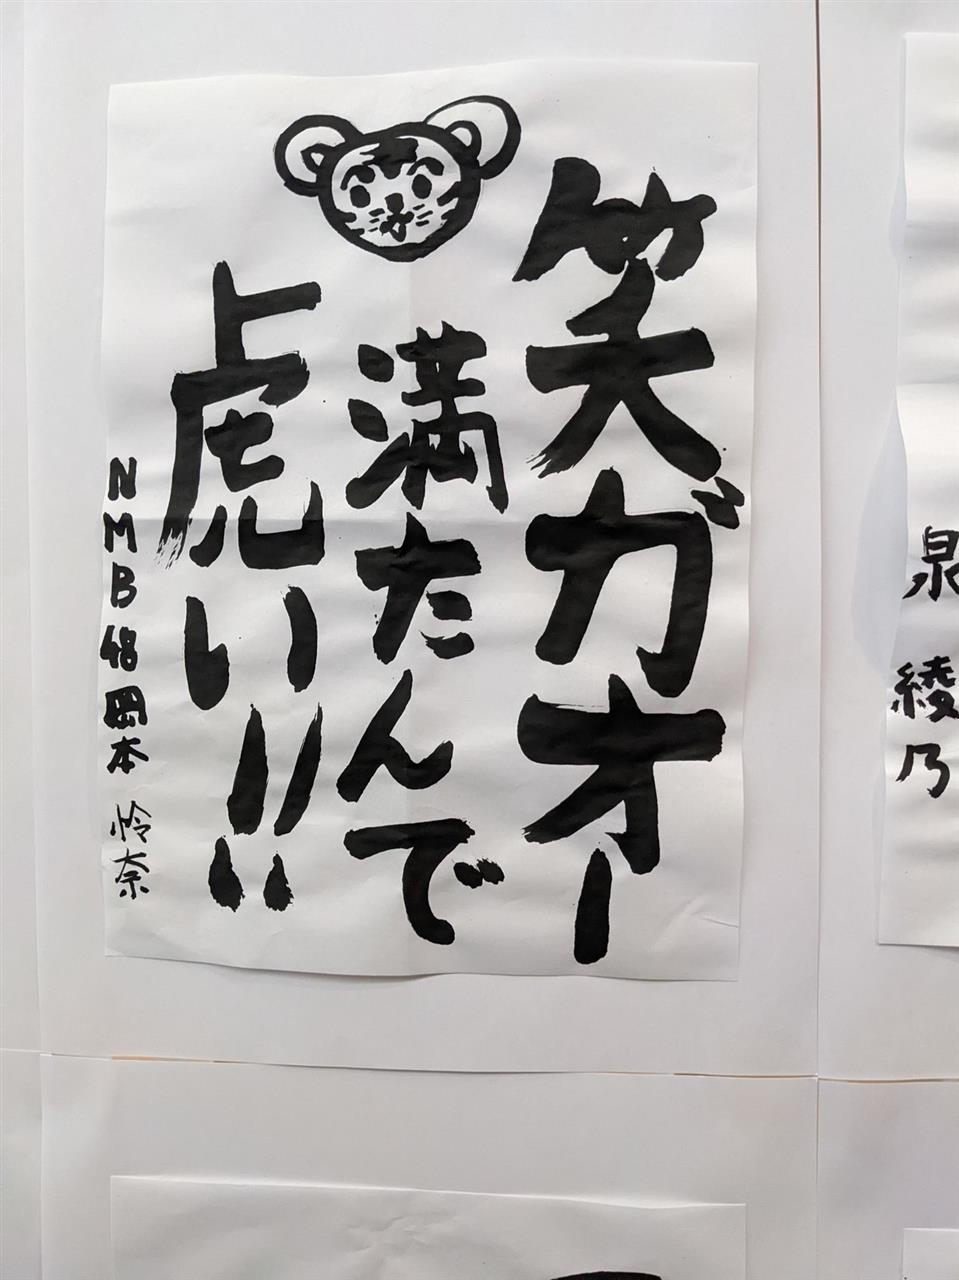 笑ガオー
満たんで
虎い!!
NMB48 岡本 怜奈
泉 綾乃